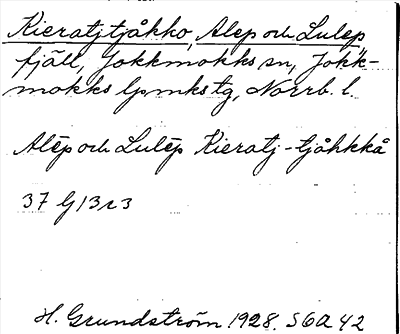 Kieratjtjåkko, Alep och Lulep
fjäll, Jokkmokks sn, Jokk-
mokks lpmkstg, Norrb. l.
Alēp och Lulēp Kieratj-tjåhkkå
37 G 13 r 3
H. Grundström 1928. S6A 42